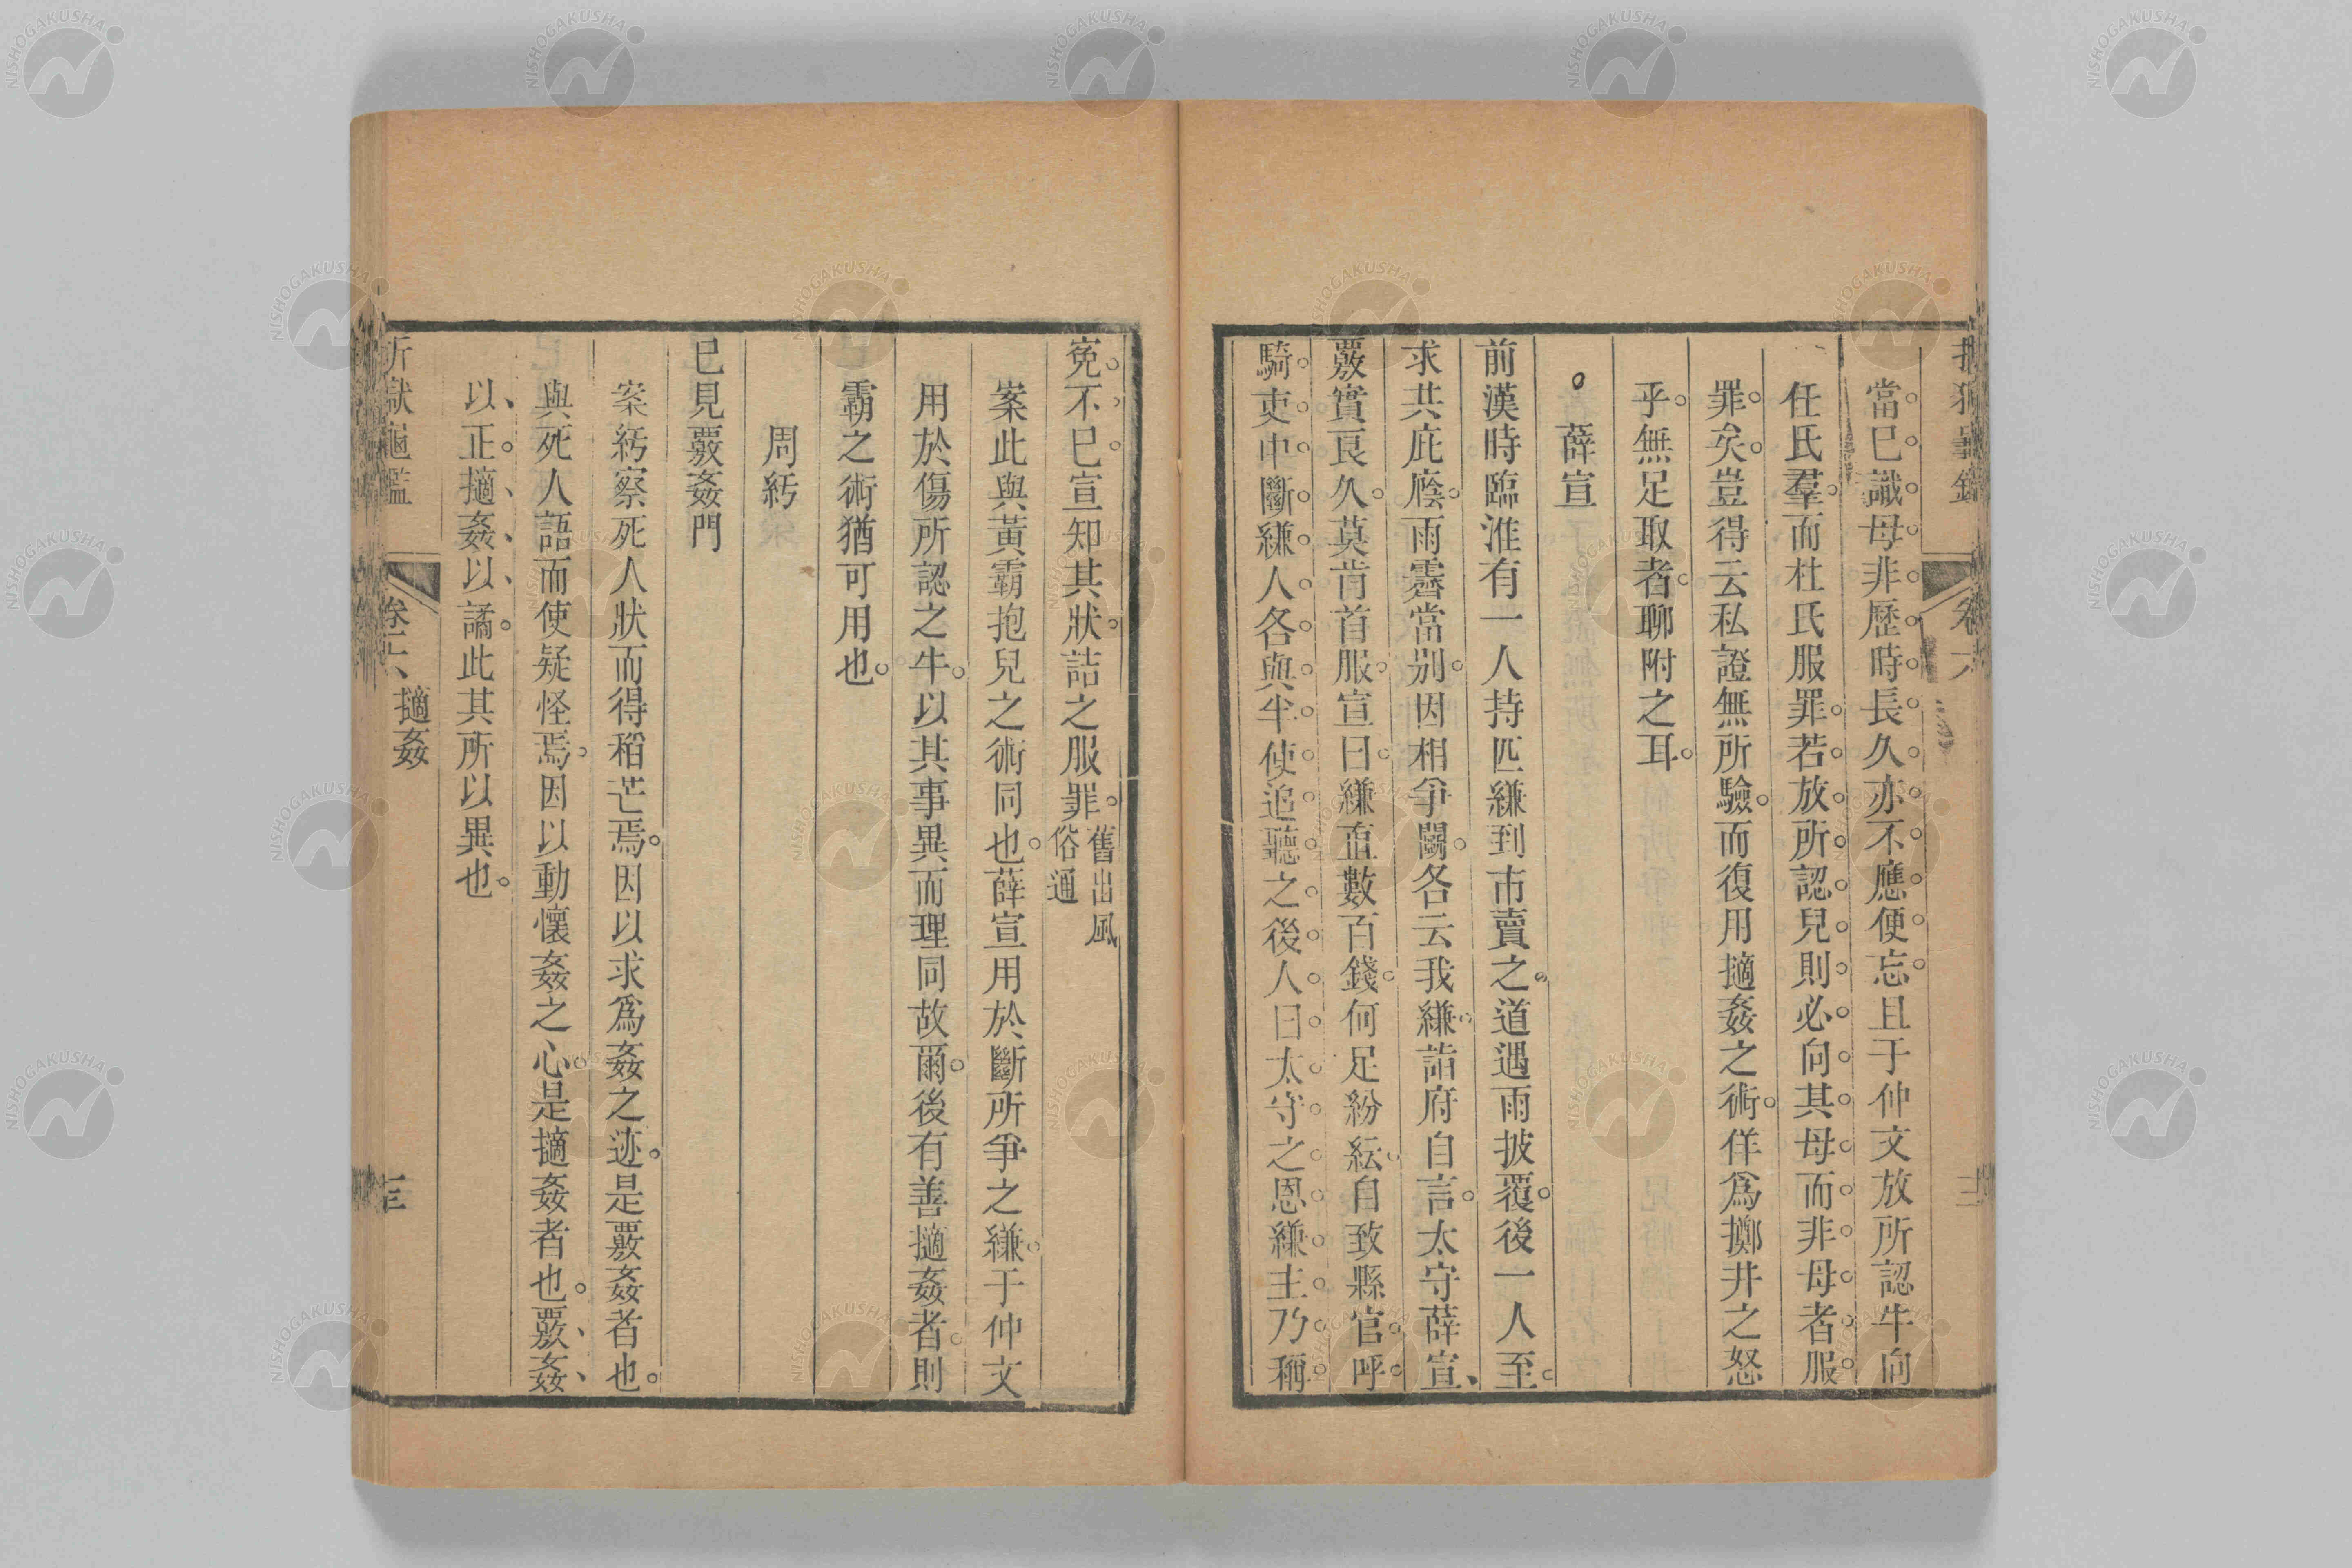 當巳識母非歷時長久亦不應便忘且于仲文放所認牛向
任氏羣而杜氏服罪若放所認兒則必向其母而非母者服
罪矣豈得云私證無所驗而復用擿姦之術佯爲擲井之怒
乎無足取者聊附之耳
薛宣
前漢時臨淮有一人持匹縑到市賣之道遇雨披覆後一人至
求共庇廕雨霽當別因相爭鬬各云我縑詣府自言太守薛宣
覈實良久莫肯首服宣曰縑直數百錢何足紛紜自致縣官呼
騎吏中斷縑人各與半使追聽之後人曰太守之恩縑主乃稱
寃不巳宣知其狀詰之服罪舊出風
俗通
案此與黃霸抱兒之術同也薛宣用於斷所爭之縑于仲文
用於傷所認之牛以其事異而理同故爾後有善擿姦者則
霸之術猶可用也
周紆
巳見覈姦門
案紆察死人狀而得稻芒焉因以求爲姦之迹是覈姦者也
與死人語而使疑怪焉因以動懷姦之心是擿姦者也覈姦
以正擿姦以譎此其所以異也
折獄龜鑑 卷六 擿姦 三
NISHOGAKUSHA